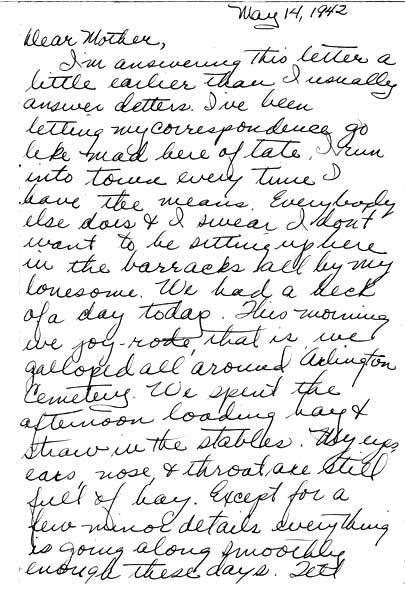 May 14, 1942
Dear Mother,
I'm answering this letter a
little earlier than I usually
answer letters. I've been
letting my correspondence go
like mad here of late. I run
into town every time I
have the means. Everybody
else does & I swear I don't
want to be sitting up here
in the barracks all by my
lonesome. We had a heck
of a day today. This morning
we joy-rode, that is, we
galloped all around Arlington
Cemetery. We spent the
afternoon loading hay &
straw in the stables. My eyes,
ears, nose, & throat are still
full of hay. Except for a
few minor details everything
is going along smoothly
enough these days.